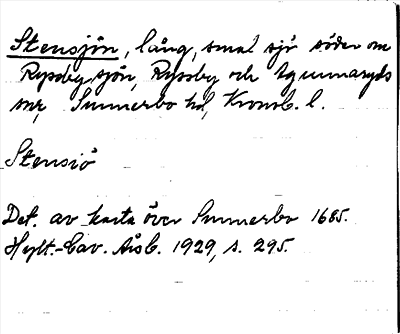 Stensjön, lång, smal sjö söder om
Ryssbysjön, Ryssby och Agunnaryds
snr, Sunnerbo hd, Kronob. l.
Stensiö
Det. av karta över Sunnerbo 1685.
Hylt.-Cav. Årsb. 1929, s. 295.